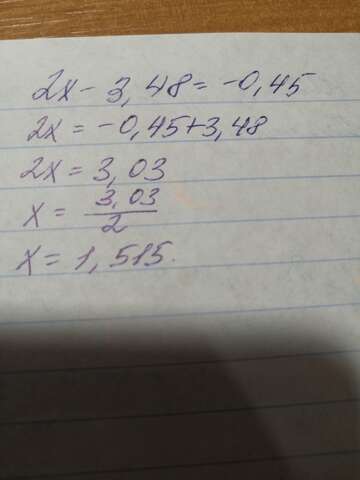 2x - 3,48 = -0,45
2x = -0,45+3,48
2x = 3,03
x = 3,03/2
x = 1,515.